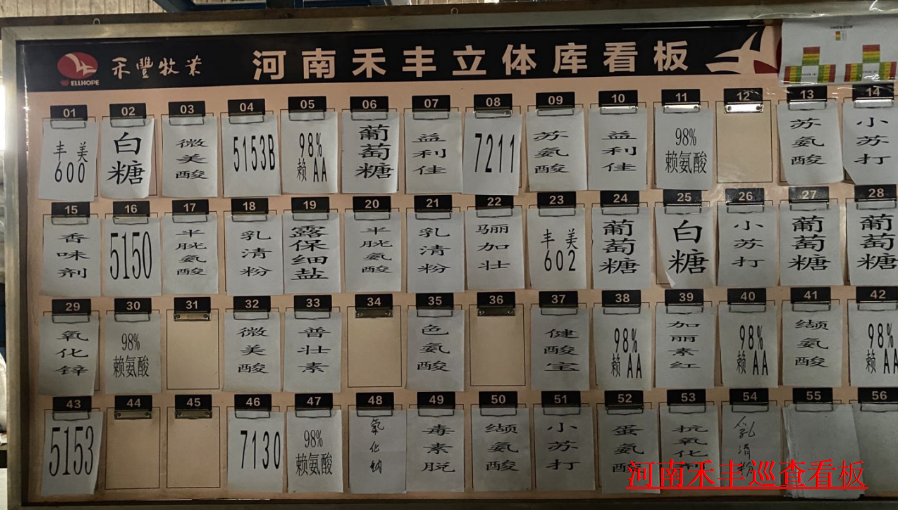 WELLHOPE
禾豐牧业 河南禾丰立体库看板
01 02 03 04 05 06 07 08 09 10 11 12 13 14
丰美600 白糖 微美酸 5153B 98%赖AA 葡萄糖 益利佳 7211 苏氨酸 益利佳 98%赖氨酸 苏氨酸 小苏打
15 16 17 18 19 20 21 22 23 24 25 26 27 28
香味剂 5150 半胱氨酸 乳清粉 露保细盐 半胱氨酸 乳清粉 骊加壮 丰美602 葡萄糖 白糖 小苏打 葡萄糖 葡萄糖
29 30 31 32 33 34 35 36 37 38 39 40 41 42
氧化锌 98%赖氨酸 微美酸 普壮素 色氨酸 健酸宝 98%赖AA 加丽素红 98%赖AA 缬氨酸 98%赖AA
43 44 45 46 47 48 49 50 51 52 53 54 55 56
5153 7130 98%赖氨酸 毒素脱 缬氨酸 小苏打 蛋氨酸 抗氧化 乳清粉
河南禾丰巡查看板